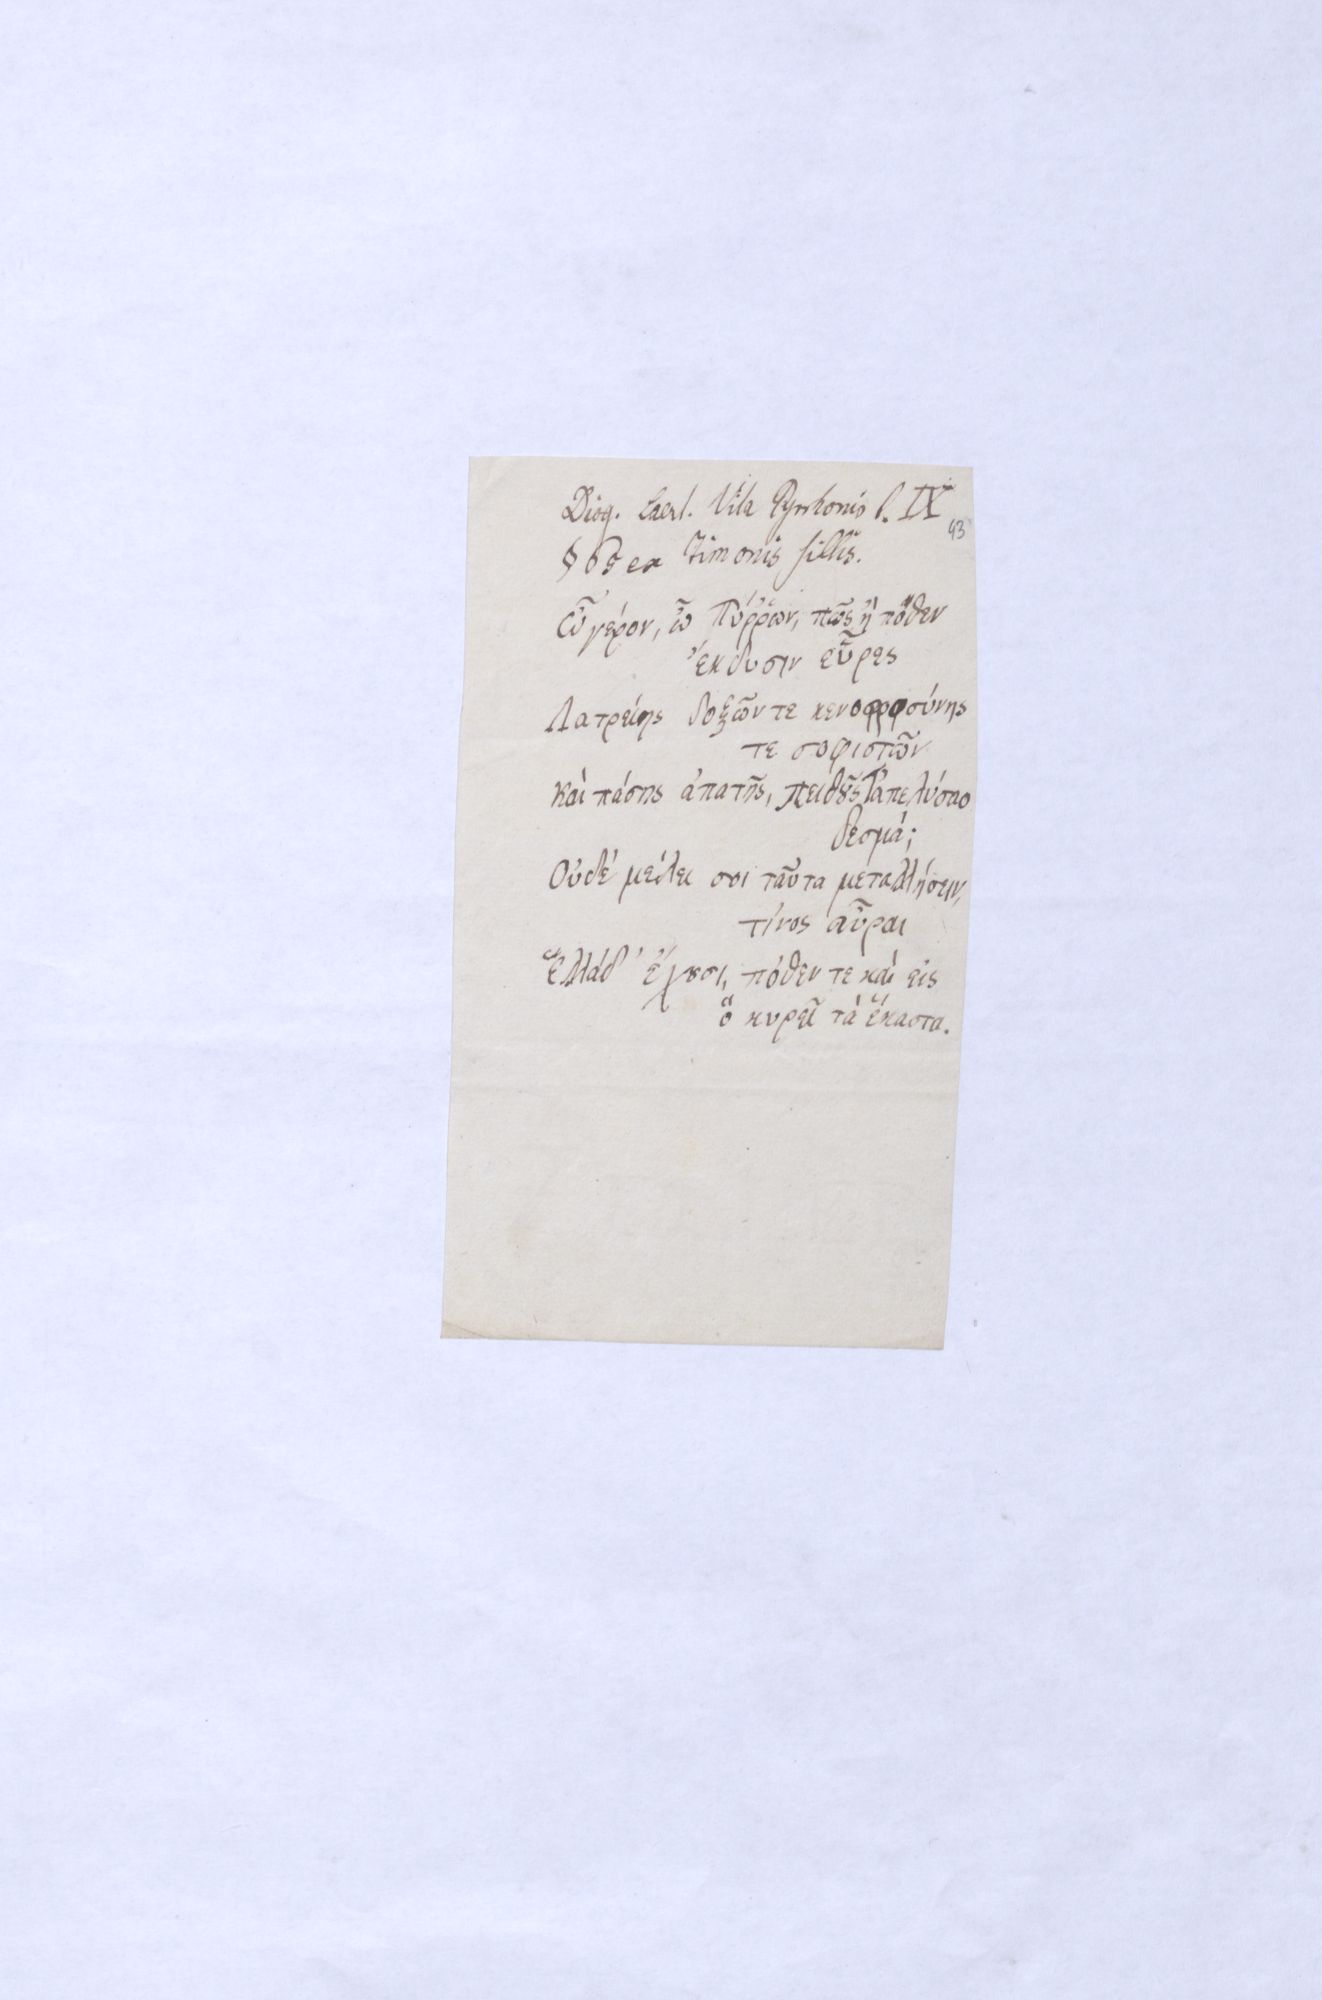 Diog. Laert. Vita Pyrrhonis l. IX
93
§ 65 ex Timonis sillis.
Ὦ γέρον, ὦ Πύῤῥων, πῶς ἢ πόθεν
ἔκδυσιν εὗρες
Λατρείης δοξῶν τε κενοφροσύνης
τε σοφιστῶν
Καὶ πάσης ἀπατῆς, πειθοῦς τ' ἀπελύσαο
δεσμά;
Οὐδὲ μέλει σοι ταῦτα μεταλλήσειν,
τίνος αὖραι
Ἑλλάδ' ἔχουσι, πόθεν τε καὶ εἰς
ὃ κυρεῖ τὰ ἕκαστα.